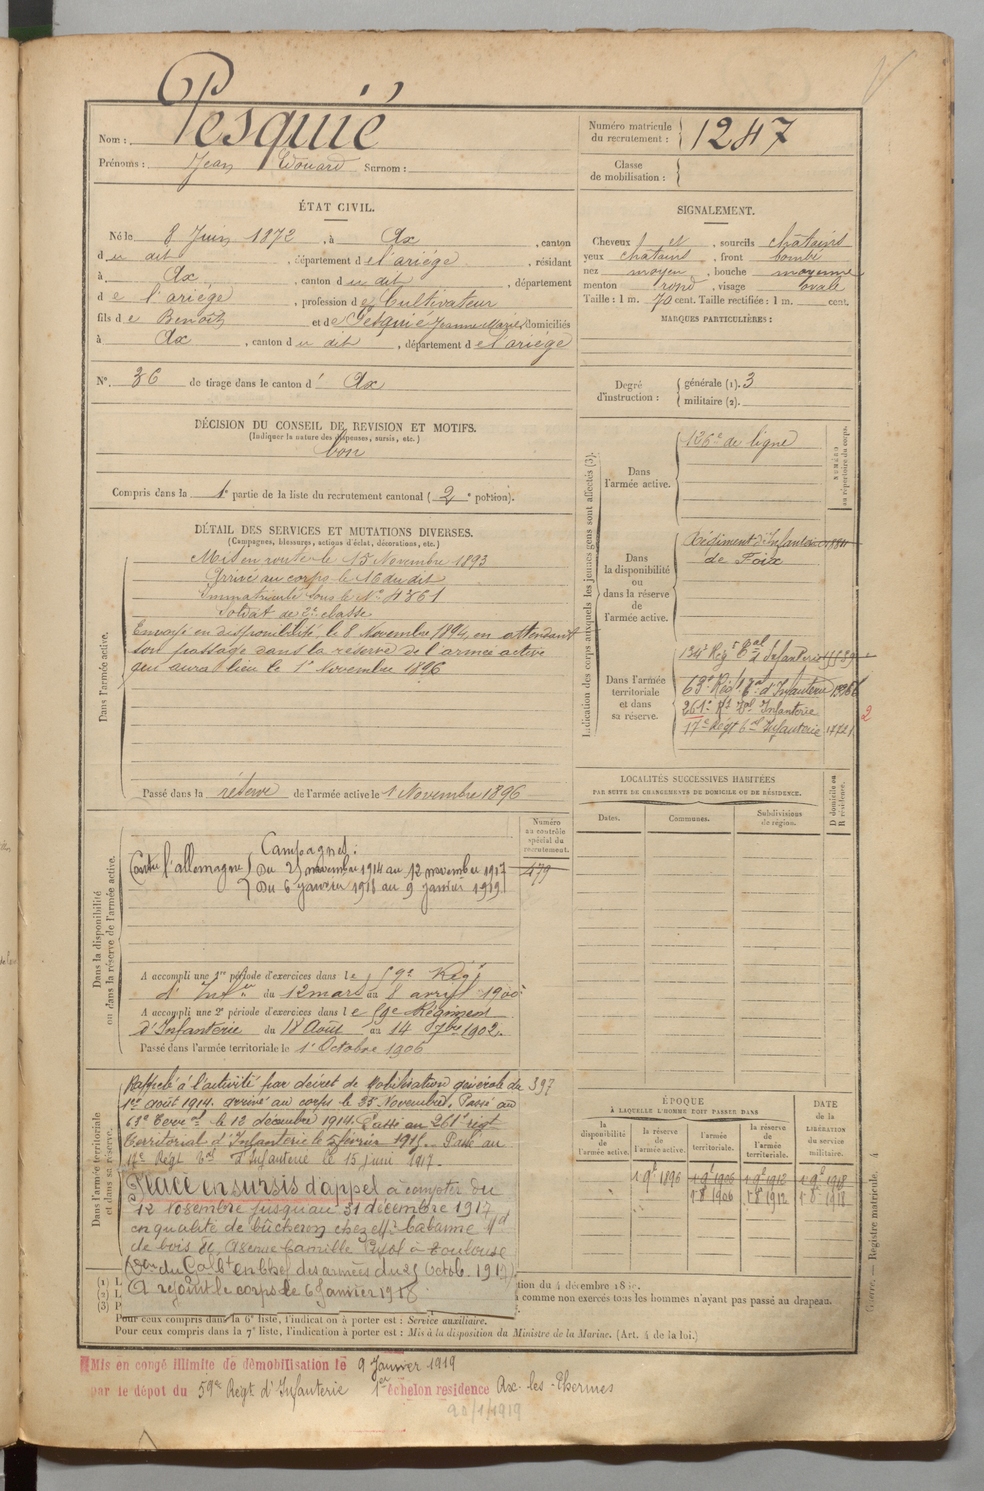 Nom : Pesquié
Prénoms : Jean Edouard Surnom :
Numéro matricule du recrutement : 1247
Classe de mobilisation :
ÉTAT CIVIL.
Né le 8 Juin 1872, à Ax, canton
du dit, département de l'ariége, résidant
à Ax, canton du dit, département
de l'ariége, profession de Cultivateur
fils de Benoit et de Pesquié Jeanne Marie, domiciliés
à Ax, canton du dit, département de l'ariége
N° 36 de tirage dans le canton d' Ax
SIGNALEMENT.
Cheveux et, sourcils châtains
yeux chatains, front bombé
nez moyen, bouche moyenne
menton rond, visage ovale
Taille : 1 m. 70 cent. Taille rectifiée : 1 m. cent.
MARQUES PARTICULIÈRES :
Degré d'instruction : générale (1). 3
militaire (2).
DÉCISION DU CONSEIL DE REVISION ET MOTIFS.
(Indiquer la nature des dispenses, sursis, etc.)
bon
Compris dans la 1e partie de la liste du recrutement cantonal (2e portion).
DÉTAIL DES SERVICES ET MUTATIONS DIVERSES.
(Campagnes, blessures, actions d'éclat, décorations, etc.)
Dans l'armée active.
Mis en route le 15 Novembre 1893
Arrivé au corps le 16 du dit
Immatriculé sous le N° 4361
Soldat de 2e classe
Envoyé en disponibilité le 8 Novembre 1894, en attendant
son passage dans la réserve de l'armée active
qui aura lieu le 1er Novembre 1896
Passé dans la réserve de l'armée active le 1 Novembre 1896
Indication des corps auxquels les jeunes gens sont affectés (3).
NUMÉRO au répertoire du corps.
Dans l'armée active. 126e de ligne
Dans la disponibilité ou dans la réserve de l'armée active.
Régiment d'Infanterie
de Foix
Dans l'armée territoriale et dans sa réserve.
134e Régt Tal d'Infanterie
63e Régt Tal d'Infanterie
261e Rt Tal Infanterie
17e Régt Tal Infanterie
2
LOCALITÉS SUCCESSIVES HABITÉES
PAR SUITE DE CHANGEMENTS DE DOMICILE OU DE RÉSIDENCE.
Dates. Communes. Subdivisions de région. D domicile ou R résidence.
Dans la disponibilité ou dans la réserve de l'armée active.
Numéro au contrôle spécial du recrutement.
479
Campagnes :
Contre l'allemagne) Du 25 novembre 1914 au 12 novembre 1917
Du 6 janvier 1918 au 9 janvier 1919
A accompli une 1re période d'exercices dans le 59e Régt
d'Infie du 12 mars au 8 avril 1900
A accompli une 2e période d'exercices dans le 59e Régiment
d'Infanterie du 18 Août au 14 7bre 1902.
Passé dans l'armée territoriale le 1er Octobre 1906
Dans l'armée territoriale et dans sa réserve.
Rappelé à l'activité par décret de Mobilisation générale du 397
1er août 1914. arrivé au corps le 25 Novembre. Passé au
63e Terral le 12 décembre 1914. Passé au 261e régt
territorial d'Infanterie le février 1915. Passé au
17e Régt Tal d'Infanterie le 15 juin 1917.
Placé en sursis d'appel à compter du
12 novembre jusqu'au 31 décembre 1917
en qualité de bûcheron chez Mr Cabanne Md
de bois Camille Pujol à Toulouse
en chef des armées du 25 Octob. 1917)
A rejoint le corps le 6 Janvier 1918
ÉPOQUE
À LAQUELLE L'HOMME DOIT PASSER DANS
la disponibilité de l'armée active. la réserve de l'armée active. l'armée territoriale. la réserve de l'armée territoriale.
DATE de la LIBÉRATION du service militaire.
1 9e 1896 1 9e 1906 1 9e 1912 1 9e 1918
1 8 1906 1 8 1912 1 8 1918
Registre matricule. 4
(1) L
(2) L
(3) P
tion du 4 décembre
comme non exercés tous les hommes n'ayant pas passé au drapeau.
Pour ceux compris dans la 6e liste, l'indication à porter est : Service auxiliaire.
Pour ceux compris dans la 7e liste, l'indication à porter est : Mis à la disposition du Ministre de la Marine. (Art. 4 de la loi.)
Mis en congé illimité de démobilisation le 9 Janvier 1919
par le dépot du 59e Régt d'Infanterie 1er échelon residence Ax-les-Thermes
20/1/1919